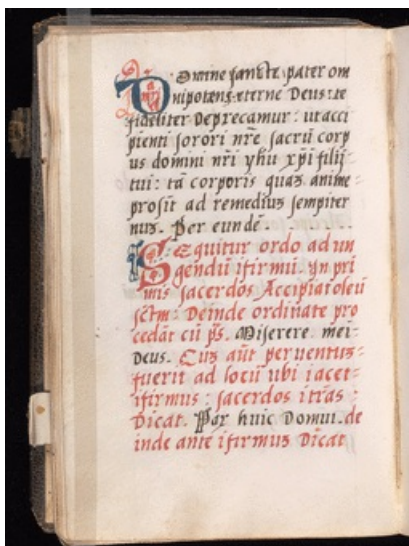 Domine sancte pater om
nipotens eterne Deus: te
fideliter deprecamur: ut acci
pienti sorori nr̄e sacrū corp
us domini nr̄i yhu xp̄i filij
tui: tā corporis quaʒ anime
prosit ad remediuʒ sempiter
nuʒ. Per eundē.
Sequitur ordo ad un
gendū ifirmū. yn pri
mis sacerdos Accipiat oleū
sc̄tm: Deinde ordināte pro
cedāt cū ps̄. Miserere mei
Deus. Cuʒ aūt peruentuʒ
fuerit ad locū ubi iacet
ifirmus: sacerdos itrās:
Dicat. Pax huic Domui. de
inde ante ifirmuʒ Dicat